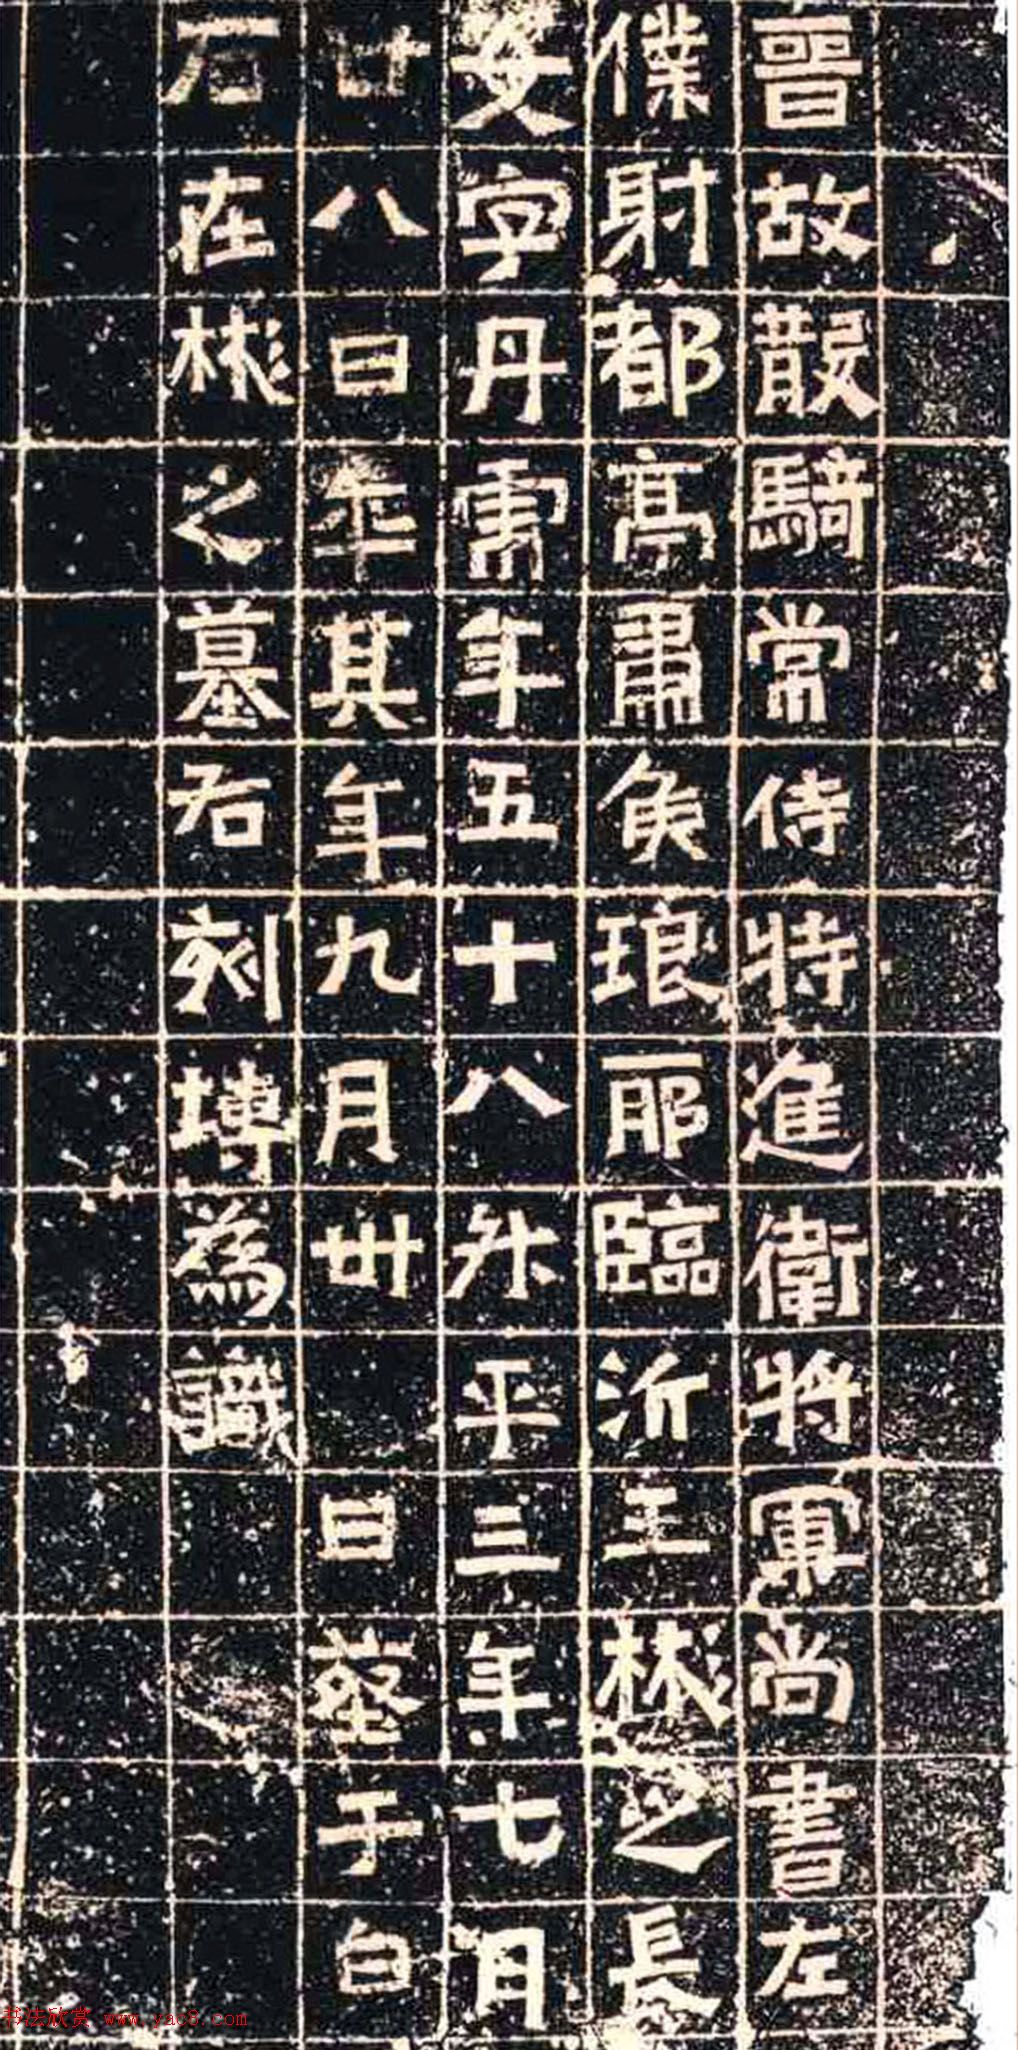 晉故散騎常侍特進衛將軍尚書左
僕射都亭肅侯琅耶臨沂王彬之長
女字丹虎年五十八升平三年七月
廿八日卒其年九月卅日葬于白
石在彬之墓右刻塼為識
书法欣赏 www.yac8.com